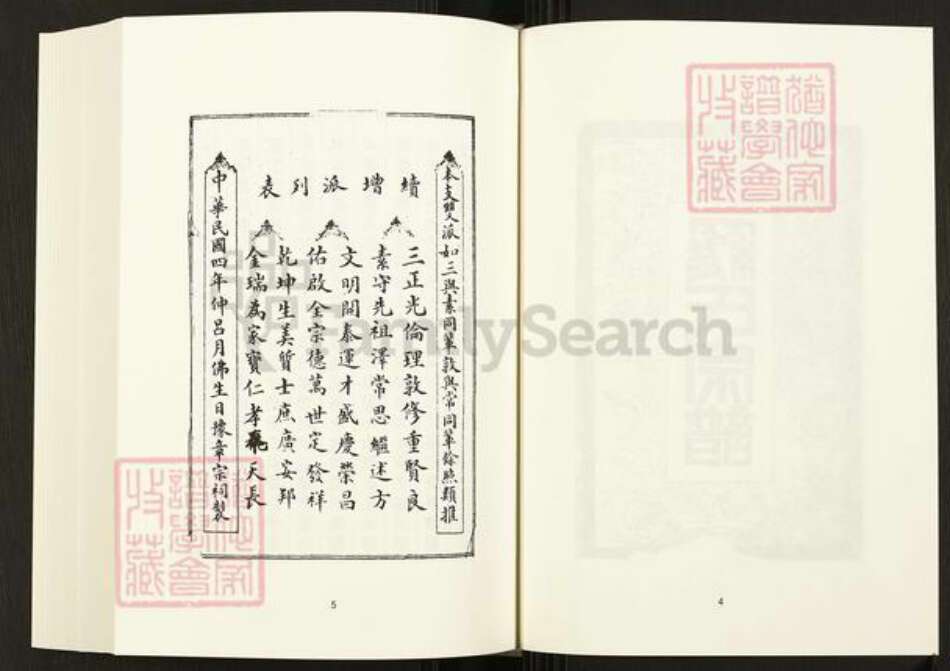 本支雙派如三與素同輩敦與常同輩餘照類推
續增派列表
三正光倫理敦修重賢良
素守先祖澤常思繼述方
文明開泰運才盛慶榮昌
佑啟全宗德萬世定發祥
乾坤生美質士庶廣安邦
金瑞為家寶仁孝 天長
中華民國四年仲呂月佛生日豫章宗祠製
5
4
譜學會
收藏
FamilySearch